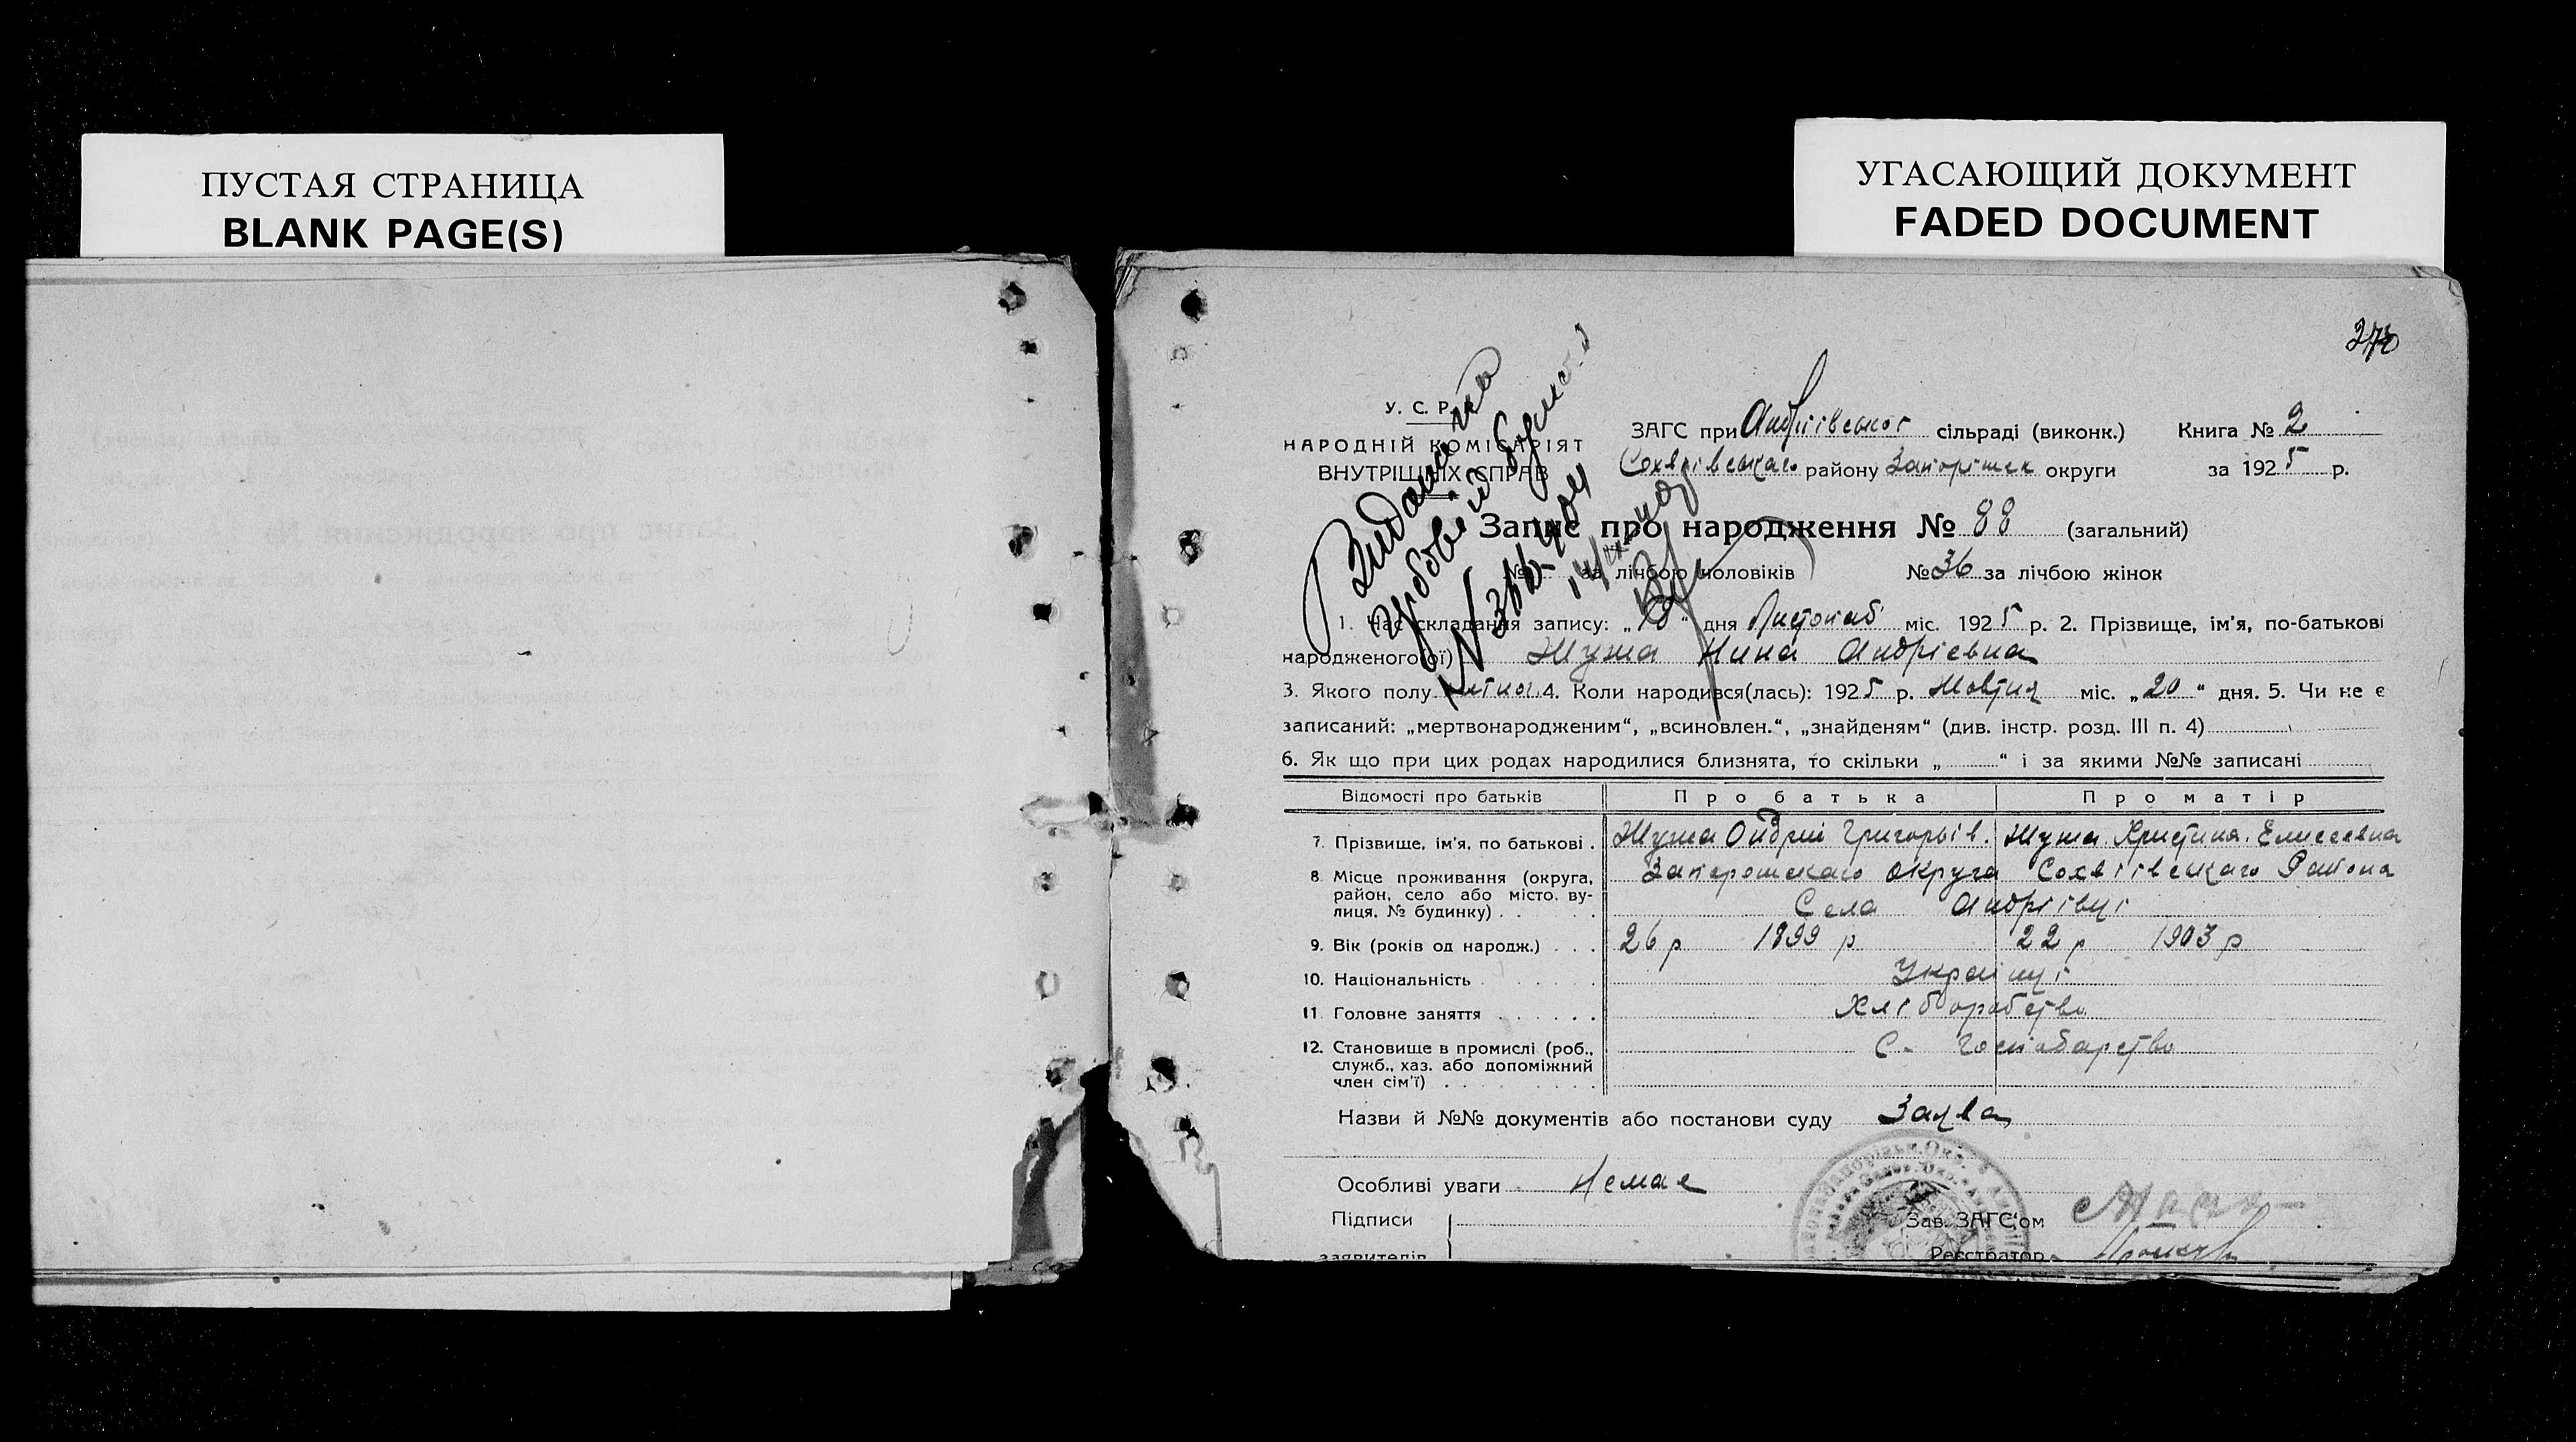 ПУСТАЯ СТРАНИЦА
BLANK PAGE(S)
УГАСАЮЩИЙ ДОКУМЕНТ
FADED DOCUMENT
У. С. Р. Р.
НАРОДНІЙ КОМІСАРІЯТ
ВНУТРІШНІХ СПРАВ
ЗАГС при Андріівськоі сільраді (виконк.) Книга № 2
району Запоріжск округи за 1925 р.
Видана на
Запис про народження № 88 (загальний)
№ за лічбою чоловіків № 36 за лічбою жінок
1. Час складання запису: „18“ дня Листопад міс. 1925 р. 2. Прізвище, ім'я, по-батькові
народженого(ої) Жужа Нина Андрієвна
3. Якого полу 4. Коли народився(лась): 1925 р. Жовтня міс. „20“ дня. 5. Чи не є
записаний: „мертвонародженим“, „всиновлен.“, „знайденям“ (див. інстр. розд. III п. 4)
6. Як що при цих родах народилися близнята, то скільки „ “ і за якими №№ записані
Відомості про батьків Про батька Про матір
7. Прізвище, ім'я, по батькові . Жужа Ондрій Григорьів. Жужа Христина Елисеевна
8. Місце проживання (округа, район, село або місто, вулиця, № будинку) . . Запорожскаго округа Района
Села Андріівці
9. Вік (років од народж.) . . . 26 р 1899 р 22 р 1903 р
10. Національність Украінці
11. Головне заняття Хліборобство
12. Становище в промислі (роб., служб., хаз. або допоміжний член сім'ї) С- Господарство
Назви й №№ документів або постанови суду Заява
Особливі уваги Немає
Підписи
заявителів
Зав. ЗАГС'ом
Реєстратор